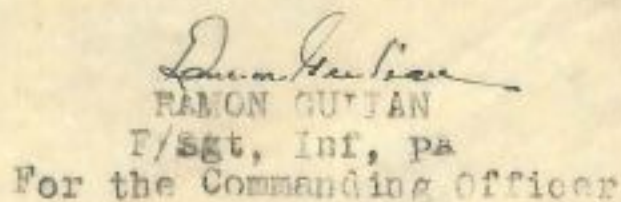 RAMON GUITJAN
F/Sgt, Inf, PA
For the Commanding Officer